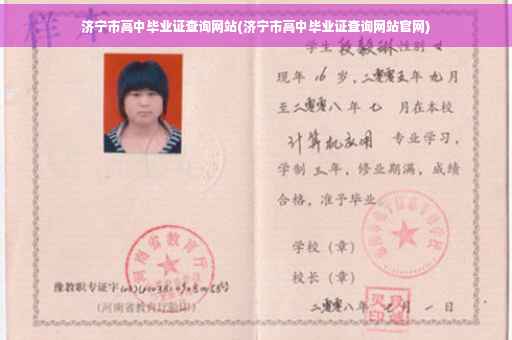 济宁市高中毕业证查询网站(济宁市高中毕业证查询网站官网)
样本
学生段毅琳性别女
现年16岁,二零零五年九月
至二零零八年七月在本校
计算机应用 专业学习,
学制三年,修业期满,成绩
合格,准予毕业
学校(章)
校长(章)
二零零八年七月一日
河南省教育厅
豫教职专证字
(河南省教育厅验印)